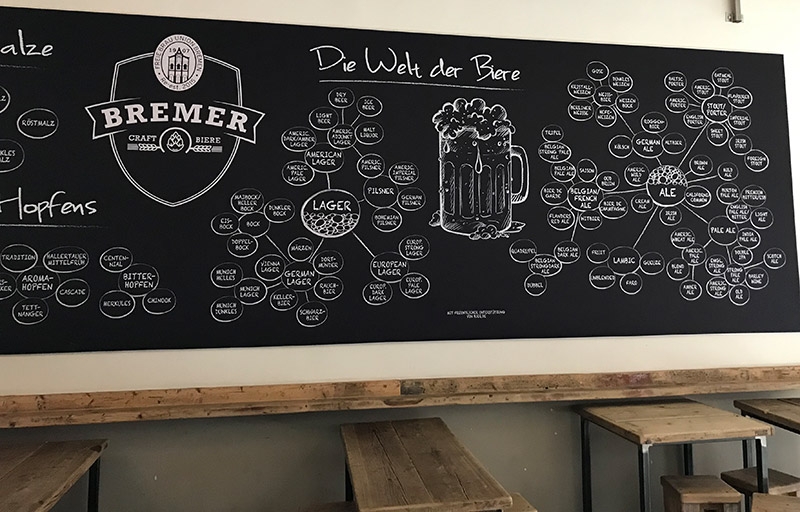 alze
RÖSTMALZ
NKLES
MALZ
FREIEBRAU UNION BREMEN
1907
Re-est. 2015
BREMER
CRAFT BIERE
Hopfens
TRADITION
HALLERTAUER
MITTELFRÜH
AROMA-
HOPFEN
CASCADE
TETT-
NANGER
CENTEN-
NIAL
BITTER-
HOPFEN
HERKULES
CHINOOK
Die Welt der Biere
LAGER
DRY
BEER
ICE
BEER
LIGHT
BEER
MALT
LIQUOR
AMERIC.
ADJUNCT
LAGER
AMERIC.
DARK/AMBER
LAGER
AMERICAN
LAGER
AMERIC.
PALE
LAGER
AMERIC.
PILSNER
AMERIC./
IMPERIAL
PILSNER
PILSNER
GERMAN
PILSNER
BOHEMIAN
PILSNER
MAIBOCK/
HELLER
BOCK
DUNKLER
BOCK
EIS-
BOCK
BOCK
DOPPEL-
BOCK
MÄRZEN
VIENNA
LAGER
DORT-
MUNDER
GERMAN
LAGER
MUNICH
HELLES
MUNICH
LAGER
MUNICH
DUNKLES
KELLER-
BIER
RAUCH-
BIER
SCHWARZ-
BIER
EURO
STRONG
LAGER
EUROPEAN
LAGER
EUROP.
DARK
LAGER
EUROP.
PALE
LAGER
ALE
GOSE
DUNKLES
WEIZEN
KRISTALL-
WEIZEN
WEISS-
BIER
WEIZEN
BOCK
BERLINER
WEISSE
HEFE-
WEIZEN
ROGGEN-
BIER
KÖLSCH
GERMAN
ALE
ALTBIER
BALTIC
PORTER
AMERIC.
PORTER
ENGLISH
PORTER
STOUT/
PORTER
OATMEAL
STOUT
AMERIC.
STOUT
FLAVOURED
STOUT
IMPERIAL
STOUT
SWEET
STOUT
FOREIGN
STOUT
BROWN
ALE
MILD
ALE
CALIFORNIA
COMMON
TRIPEL
BELGIAN
STRONG PALE
ALE
BELGIAN
PALE ALE
SAISON
OUD
BRUIN
AMERIC.
WILD
ALE
BIER DE
GARDE
BELGIAN/
FRENCH
ALE
BIER DE
CHAMPAGNE
CREAM
ALE
IRISH
ALE
FLANDERS
RED ALE
WITBIER
QUADRUPEL
BELGIAN
DARK ALE
BELGIAN
STRONG DARK
ALE
DUBBEL
FRUIT
LAMBIC
GUEUZE
UNBLENDED
FARO
BRITISH
PALE
ALE
PREMIUM
BITTER/ESB
ENGLISH
PALE ALE/
BITTER
LIGHT
ALE
PALE ALE
INDIA
PALE ALE
AMERIC.
WHEAT ALE
AMERIC.
PALE
ALE
DOUBLE
IPA
SCOTCH
ALE
BLOND
ALE
AMBER
ALE
ENGL.
STRONG
ALE
AMERIC.
STRONG
ALE
BARLEY
WINE
OLD
ALE
MIT FREUNDLICHER UNTERSTÜTZUNG